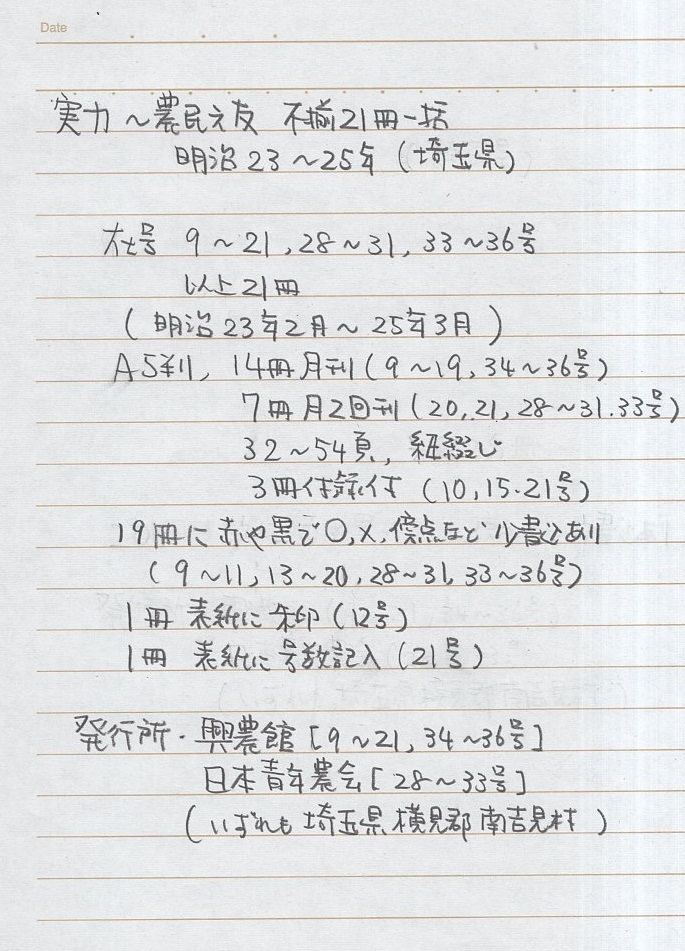 Date
実力〜農民之友 不揃21冊一括
明治23〜25年(埼玉県)
在号 9〜21,28〜31,33〜36号
以上21冊
(明治23年2月〜25年3月)
A5判,14冊月刊(9〜19,34〜36号)
7冊月2回刊(20,21,28〜31.33号)
32〜54頁,紐綴じ
3冊付録付(10,15.21号)
19冊に赤や黒で〇,×,傍点など少書込あり
(9〜11,13〜20,28〜31,33〜36号)
1冊 表紙に朱印(12号)
1冊 表紙に号数記入(21号)
発行所・興農館[9〜21,34〜36号]
日本青年農会[28〜33号]
(いずれも埼玉県横見郡南吉見村)